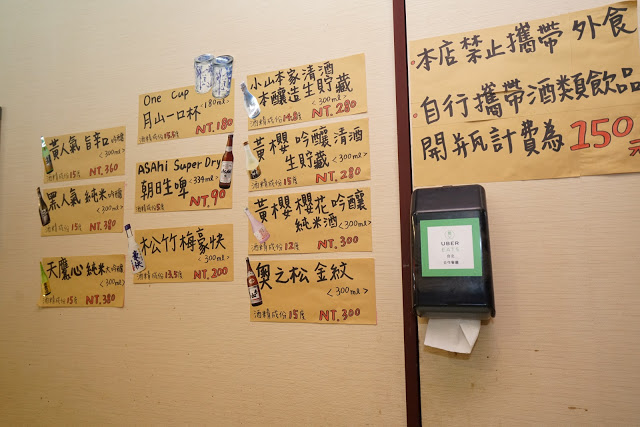 黃人氣 旨辛口 吟釀
<300ml>
酒精成份15度 NT.360
黑人氣 純米吟釀
<300ml>
酒精成份15度 NT.380
天鷹心 純米大吟釀
<300ml>
酒精成份15度 NT.380
One Cup
<180ml>
月山一口杯
NT.180
ASAhi Super Dry
朝日生啤 <334ml>
酒精成份5度 NT.90
松竹梅豪快
<300ml>
酒精成份13.5度 NT.200
小山本家清酒
本釀造生貯藏
<300ml>
酒精成份14.8度 NT.280
黃櫻 吟釀清酒
生貯藏 <300ml>
酒精成份15度 NT.280
黃櫻櫻花吟釀
純米酒 <300ml>
酒精成份12度 NT.300
奧之松金紋
<300ml>
酒精成份15度 NT.300
本店禁止攜帶外食
自行攜帶酒類飲品
開瓶計費為150元
UBER
EATS